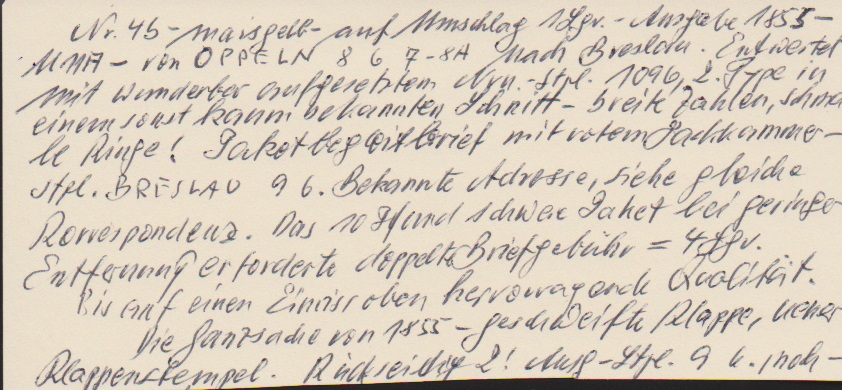 Nr. 4b - maisgelb - auf Umschlag 1 Sgr. - Ausgabe 1855 -
von OPPELN 8 6 7-8A nach Breslau. Entwertet
mit wunderbar aufgesetztem Nrn.-Stpl. 1096, 2. Type in
einem sonst kaum bekannten Schnitt - breite Zahlen, schma
le Ringe! Paketbegleitbrief mit rotem Packkammer-
stpl. BRESLAU 9 6. Bekannte Adresse, siehe gleiche
Korrespondenz. Das 10 Pfund schwere Paket bei geringer
Entfernung erforderte doppelte Briefgebühr = 4 Sgr.
Bis auf einen Einriss oben hervorragende Qualität.
Die Ganzsache von 1855 - geschweifte Klappe,
Klappenstempel. Rückseitig 2! Ausg-Stpl. 9 6.